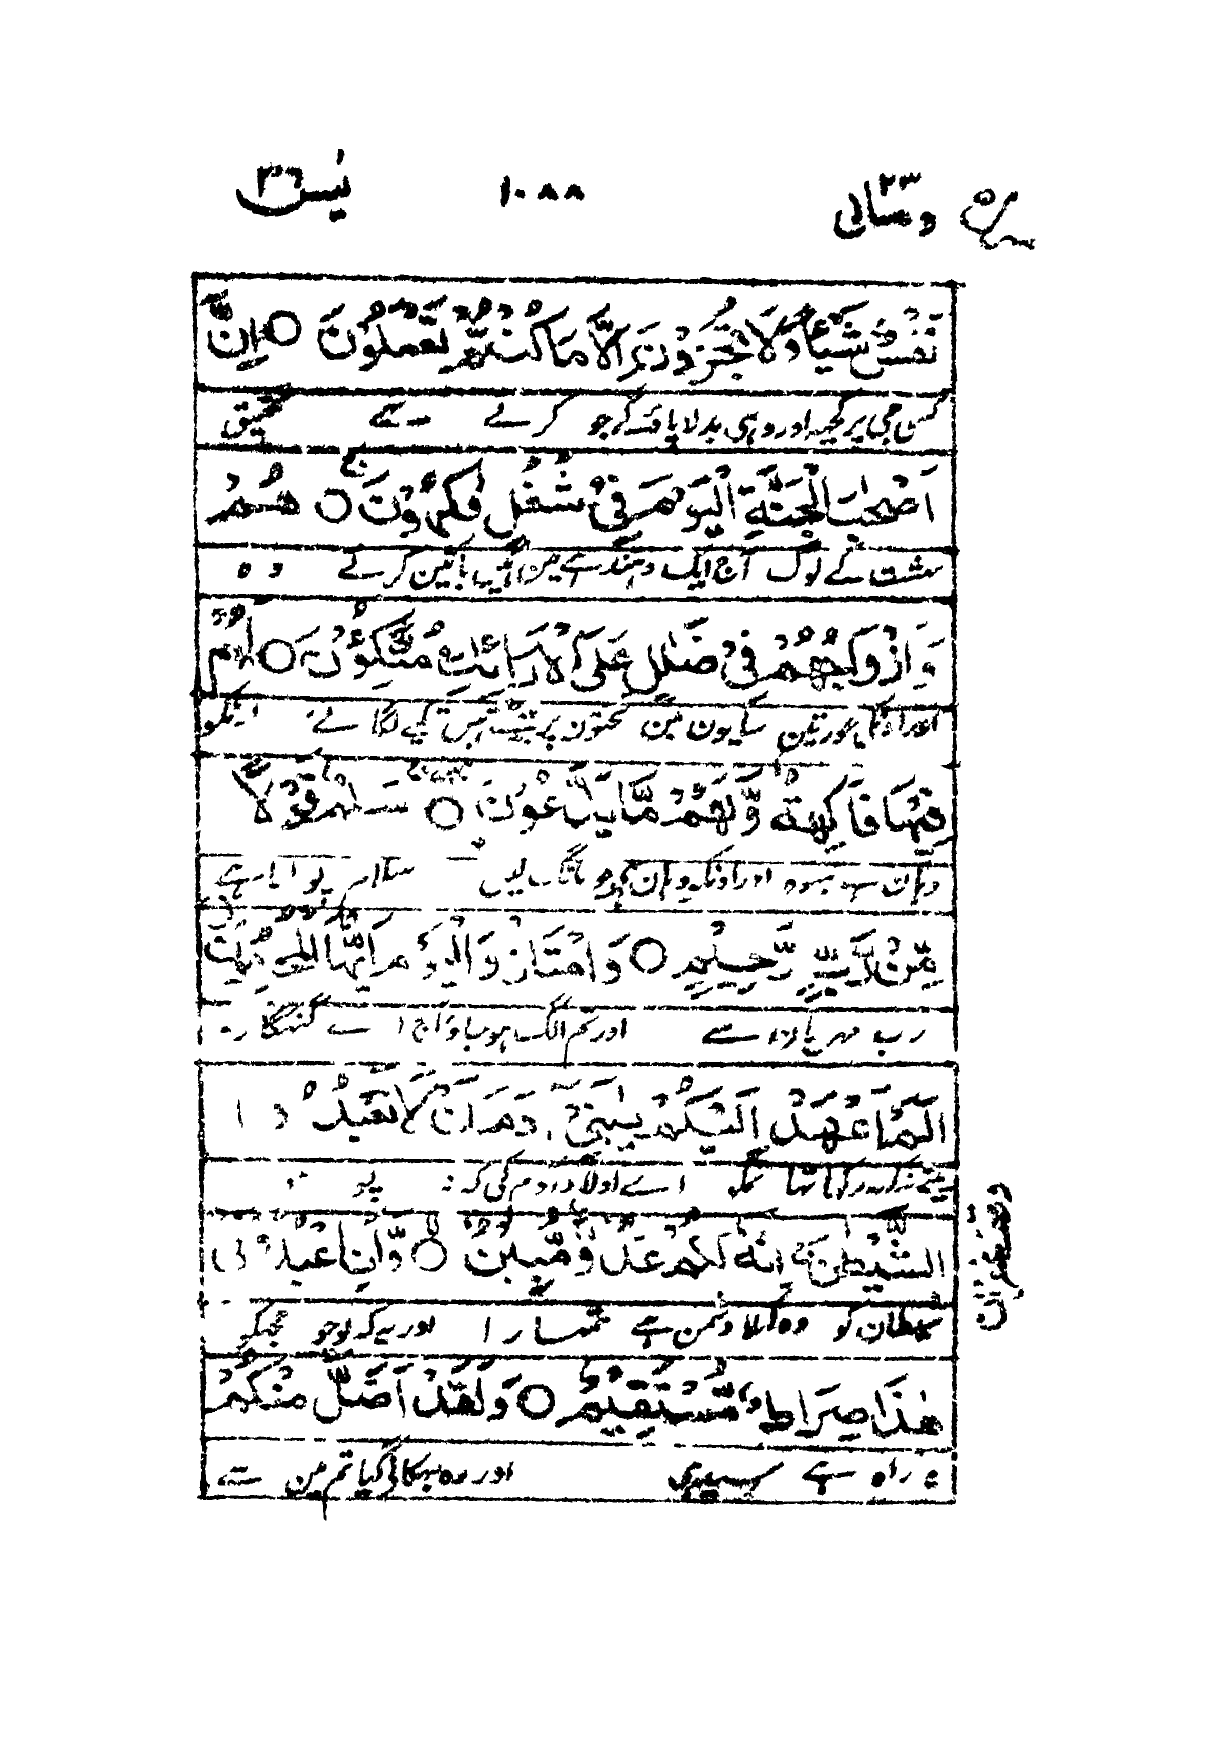 ومالی ٢٣ ١٠٨٨ یٰسٓ ٣٦
نَفْسٌ شَيْئًا وَّلَا تُجْزَوْنَ اِلَّا مَا كُنْتُمْ تَعْمَلُوْنَ ۝ اِنَّ
کسی جی پر کچھ اور وہی بدلا پاؤگے جو کرتے تھے تحقیق
اَصْحٰبَ الْجَنَّةِ الْيَوْمَ فِيْ شُغُلٍ فٰكِهُوْنَ ۝ هُمْ
بہشت کے لوگ آج ایک دہندے مین ہین باتین کرتے وہ
وَاَزْوَاجُهُمْ فِيْ ظِلٰلٍ عَلَى الْاَرَآئِكِ مُتَّكِـُٔوْنَ ۝ لَهُمْ
اور اونکی عورتین سایون مین تختون پر بیٹھے ہین تکیے لگائے اونکو
فِيْهَا فَاكِهَةٌ وَّلَهُمْ مَّا يَدَّعُوْنَ ۝ سَلٰمٌ قَوْلًا
وہان ہے میوہ اور اونکو وہان ہے جو مانگ لیں سلام بولنا ہے
مِّنْ رَّبٍّ رَّحِيْمٍ ۝ وَامْتَازُوا الْيَوْمَ اَيُّهَا الْمُجْرِمُوْنَ
رب مہربان سے اور تم الگ ہوجاؤ آج اے گنہگارو
اَلَمْ اَعْهَدْ اِلَيْكُمْ يٰبَنِيْ اٰدَمَ اَنْ لَّا تَعْبُدُوا
مینے نہ کہہ رکھا تھا تمکو اے اولاد آدم کی کہ نہ پوجیو
الشَّيْطٰنَ اِنَّهٗ لَكُمْ عَدُوٌّ مُّبِيْنٌ ۝ وَّاَنِ اعْبُدُوْنِيْ
شیطان کو وہ کھلا دشمن ہے تمہارا اور یہ کہ پوجو مجھکو
هٰذَا صِرَاطٌ مُّسْتَقِيْمٌ ۝ وَلَقَدْ اَضَلَّ مِنْكُمْ
یہ راہ ہے سیدھی اور وہ بہکا لے گیا تم مین سے